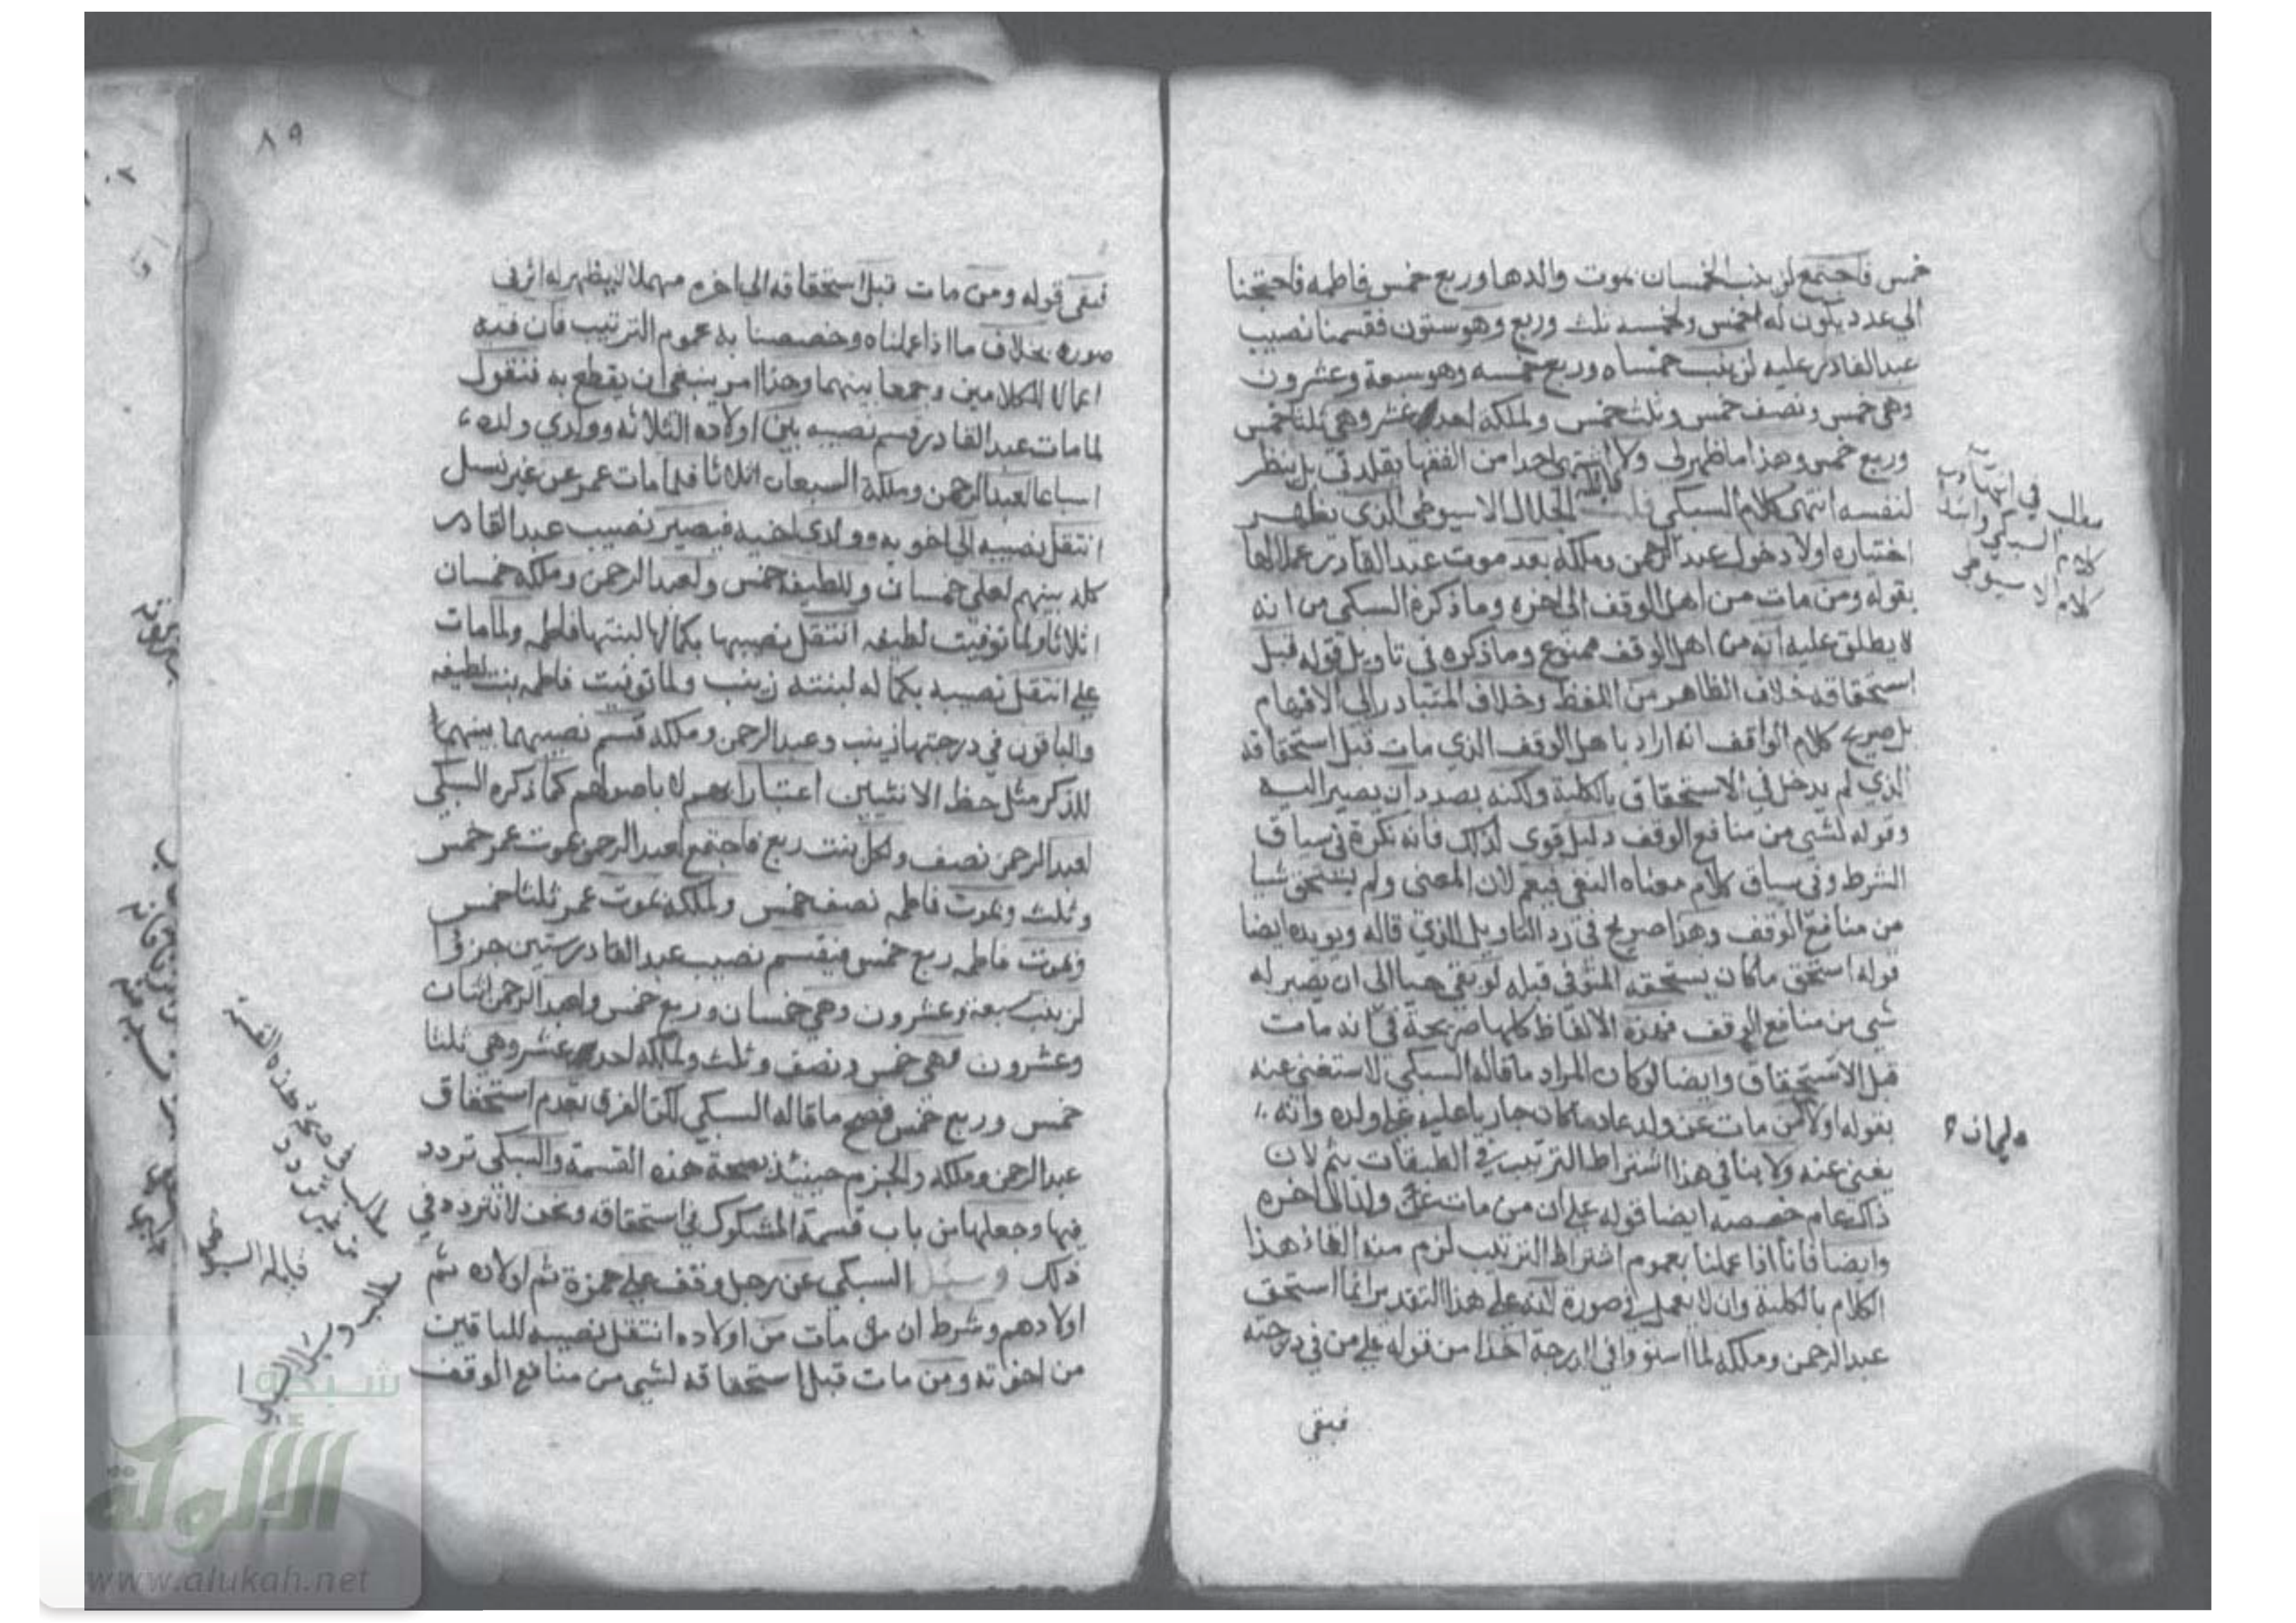 خمس فاجتمع لزينب الخمسان بموت والدها وربع خمس فاطمه فاحتجنا
الي عدد يكون له خمس ولخمسه ثلث وربع وهو ستون فقسمنا نصيب
عبد القادر عليه لزينب خمساه وربع خمسه وهو سبعة وعشرون
وهي خمس ونصف خمس وثلث خمس ولملكه احد عشر وهي ثلثا خمس
وربع خمس وهذا ما ظهر لي ولا اشتهي احدا من الفقها يقلدني بل ينظر
لنفسه انتهى كلام السبكي قلت قاله الجلال الاسيوطي الذي يظهر
اختياره اولا دخول عبد الرحمن وملكه بعد موت عبد القادر عملا
بقوله ومن مات من اهل الوقف الى اخره وما ذكره السبكي من انه
لا يطلق عليه انه من اهل الوقف ممنوع وما ذكره في تاويل قوله قبل
استحقاقه خلاف الظاهر من اللفظ وخلاف المتبادر الى الافهام
بل صريح كلام الواقف انه اراد باهل الوقف الذي مات قبل استحقاقه
الذي لم يدخل في الاستحقاق بالكلية ولكنه بصدد ان يصير اليه
وقوله لشي من منافع الوقف دليل قوي لذلك فانه نكرة في سياق
الشرط وفي سياق كلام معناه النفي فيعم لان المعنى ولم يستحق شيا
من منافع الوقف وهذا صريح في رد التاويل الذي قاله ويويده ايضا
قوله استحق ما كان يستحقه المتوفى قبله لو بقي حيا الى ان يصير له
شي من منافع الوقف فهذه الالفاظ كلها صريحة في انه مات
قبل الاستحقاق وايضا لو كان المراد ما قاله السبكي لاستغني عنه
بقوله اولا من مات عن ولد عاد ما كان جاريا عليه على ولده وانه
يغني عنه ولا ينافي هذا اشتراط الترتيب في الطبقات بثم لان
ذاك عام خصصه ايضا قوله على ان من مات عن ولد الى اخره
وايضا فانا اذا عملنا بعموم اشتراط الترتيب لزم منه الغاء هذا
الكلام بالكلية وان لا يعمل في صورة لانه على هذا التقدير انما استحق
عبد الرحمن وملكه لما استووا في الدرجة اخذا من قوله على من في درجته
فبقي
مطلب في انتهاء
كلام السبكي وابتداء
كلام الاسيوطي
٨٩
فبقي قوله ومن مات قبل استحقاقه الى اخره مهملا لا يظهر له اثر في
صوره بخلاف ما اذا عملناه وخصصنا به عموم الترتيب فان فيه
اعمالا للكلامين وجمعا بينهما وهذا امر ينبغي ان يقطع به فنقول
لما مات عبد القادر قسم نصيبه بين اولاده الثلاثه وولدي ولده
اسباعا لعبد الرحمن وملكه السبعان اثلاثا فلما مات عمر عن غير نسل
انتقل نصيبه الى اخويه وولدي اخيه فيصير نصيب عبد القادر
كله بينهم لعلي خمسان وللطيفه خمس ولعبد الرحمن وملكه خمسان
اثلاثا ولما توفيت لطيفه انتقل نصيبها بكمالها لبنتها فاطمه ولما مات
علي انتقل نصيبه بكماله لبنته زينب ولما توفيت فاطمه بنت لطيفه
والباقون في درجتها زينب وعبد الرحمن وملكه قسم نصيبها بينهما
للذكر مثل حظ الانثيين اعتبارا بهم لا باصولهم كما ذكره السبكي
لعبد الرحمن نصف ولكل بنت ربع فاجتمع لعبد الرحمن بموت عمر خمس
وثلث وبموت فاطمه نصف خمس ولملكه بموت عمر ثلثا خمس
وبموت فاطمه ربع خمس فيقسم نصيب عبد القادر ستين جزءا
لزينب سبعة وعشرون وهي خمسان وربع خمس ولعبد الرحمن اثنان
وعشرون وهي خمس ونصف وثلث ولملكه احد عشر وهي ثلثا
خمس وربع خمس فصح ما قاله السبكي لكن الفرق تقدم استحقاق
عبد الرحمن وملكه والجزم حينئذ بصحة هذه القسمة والسبكي تردد
فيها وجعلها من باب قسمة المشكوك في استحقاقه ونحن لا نتردد في
ذلك وسئل السبكي عن رجل وقف على حمزة ثم اولاده ثم
اولادهم وشرط ان من مات من اولاده انتقل نصيبه للباقين
من اخوته ومن مات قبل استحقاقه لشي من منافع الوقف
مطلب في صحة هذه القسمة
من غير تردد
قاله السيوطي
مطلب وسئل السبكي
شبكة
الألوكة
www.alukah.net